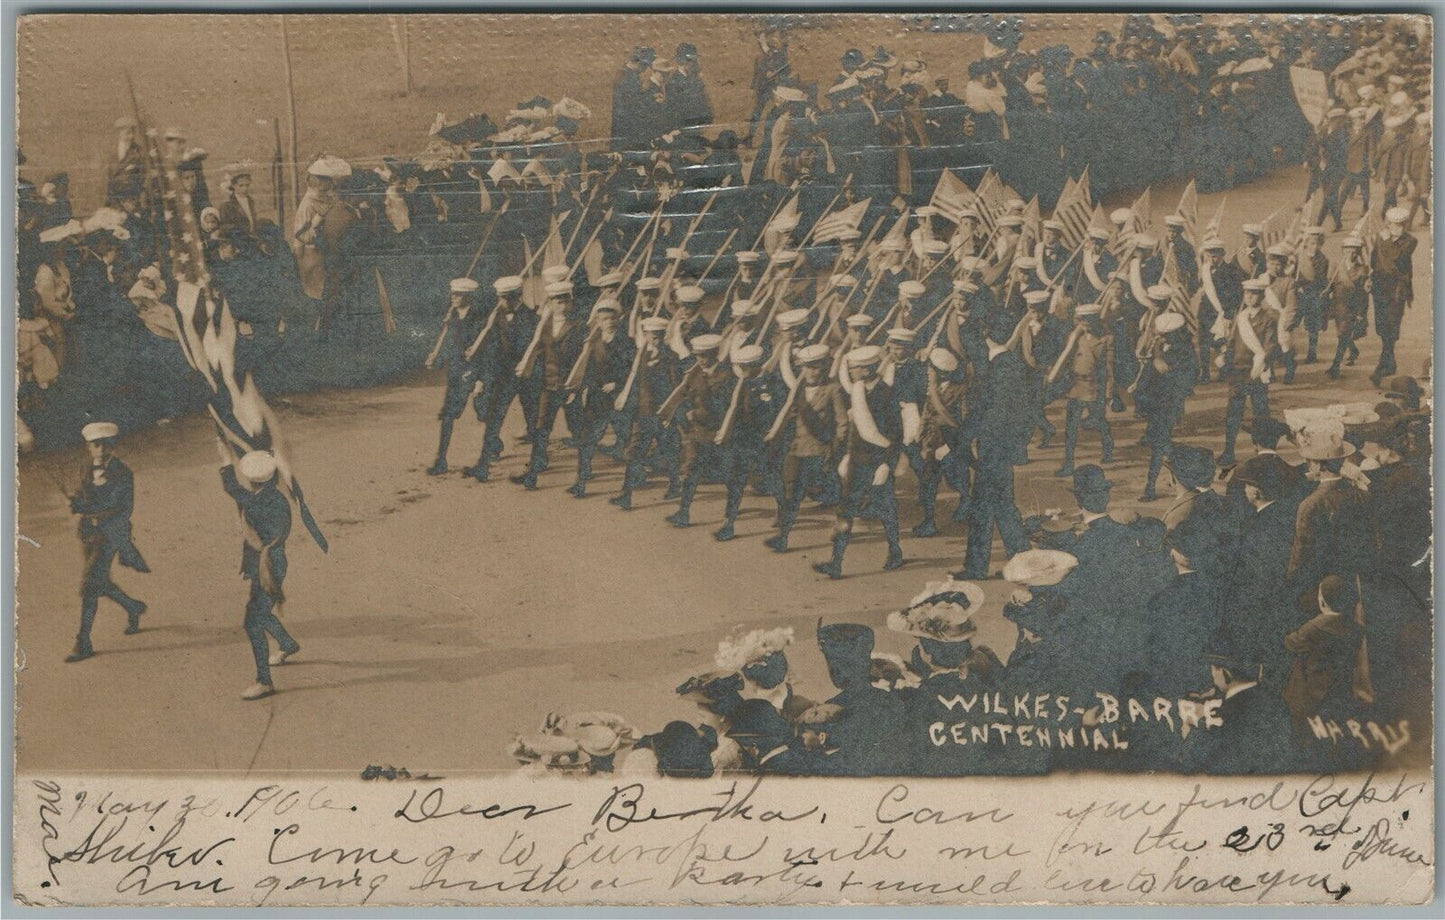 WILKES-BARRE
CENTENNIAL
HARRIS
May 30. 1906. Dear Bertha. Can you find Capt.
Come go to Europe with me on the 23rd of June
Am going with a party & would like to have you,
Mae.